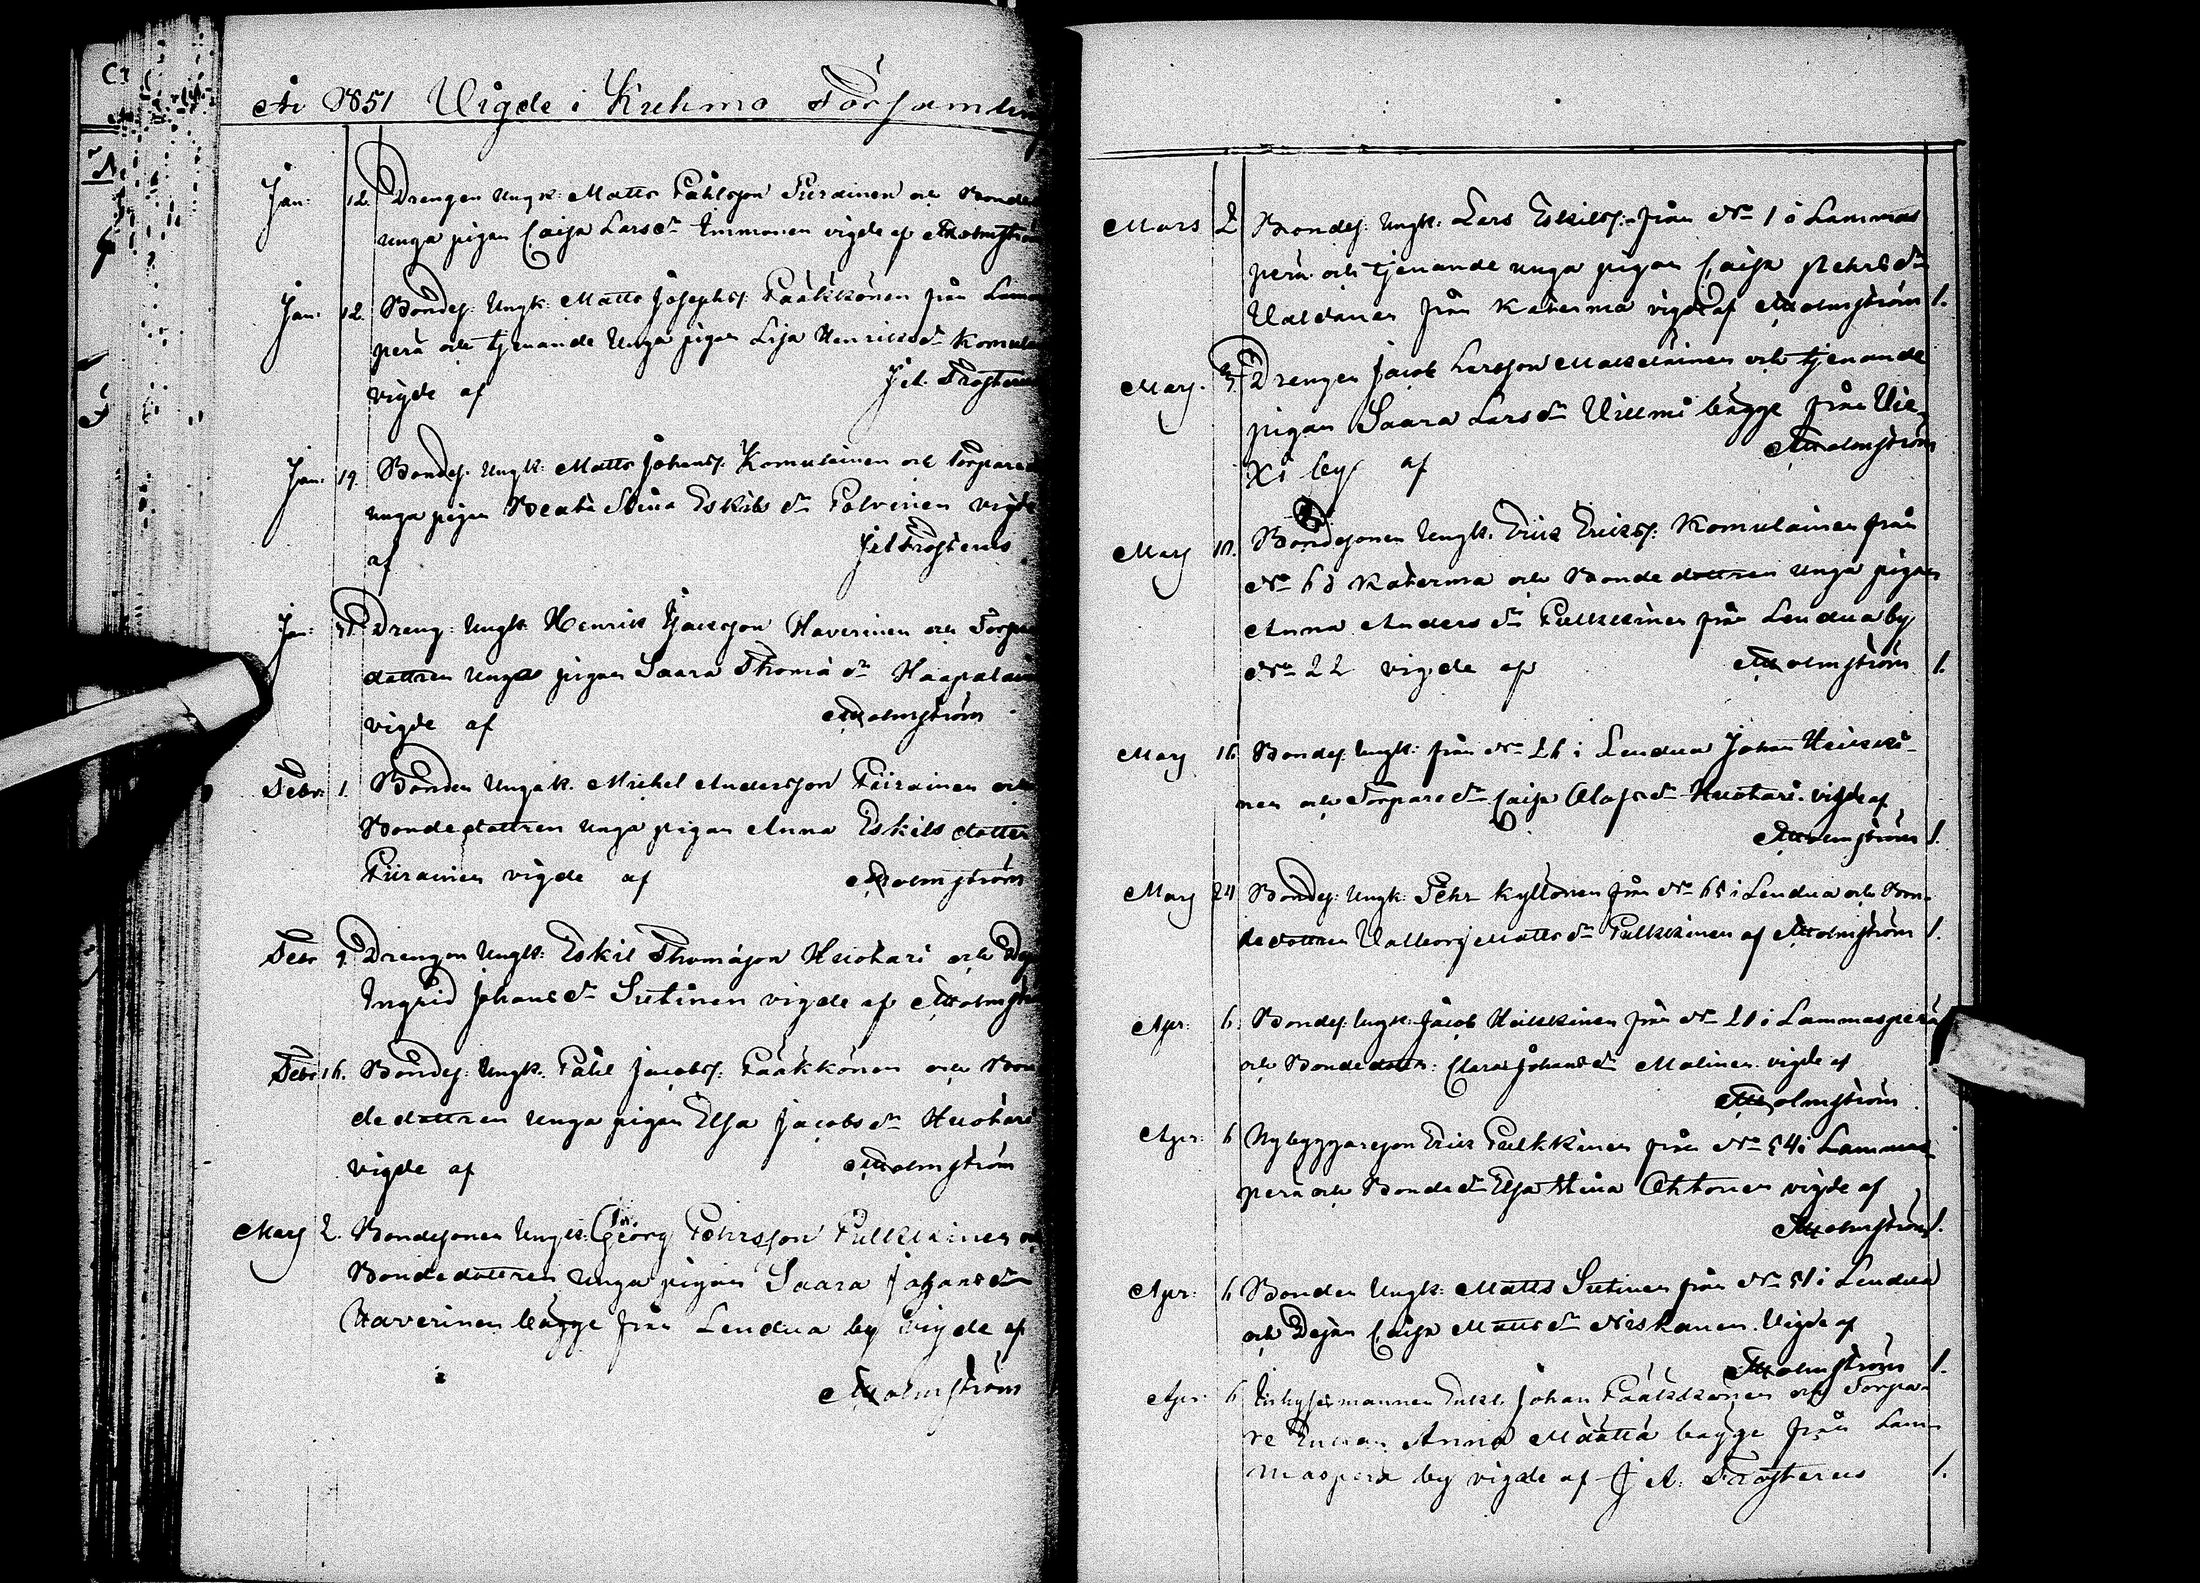 År 1851 Vigde i Kuhmo Församlin
Jan: 12. Drengen Ungk: Matts Påhlsson Piirainen och Bonde
unga pigan Caisa Larsdr Immonen vigde af AHolmström
Jan: 12. Bondes: Ungk: Matts Josephs: Pääkkönen från Lamm
perä och tjenande Unga pigan Lisa Henricsdr Komula
vigde af J.A. Frosterus
Jan: 19. Bondes: Ungk: Matts Johans: Komulainen och Torpare
unga pigan Beata Stina Eskilsdr Polvinen vigde
af J.A. Frosterus
Jan: Dreng: Ungk: Henrik Isacsson Haverinen och Torpa
dottren unga pigan Saara Thomædr Haapalai
vigde af AHolmström
Febr: 1. Bonden Ungk. Michel Andersson Piirainen och
Bondedottren unga pigan Anna Eskilsdotter
Piirainen vigde af AHolmström
Febr 9. Drengen Ungk: Eskil Thomasson Huotari och
Ingrid Johansdr Sutinen vigde af AHolmst
Febr 16. Bondes: Ungk. Påhl Jacobs: Pääkkönen och Bon
dedottren unga pigan Elsa Jacobsdr Huotari
vigde af AHolmström
Mars 2. Bondesonen Ungk: Georg Pehrsson Pulkkinen och
Bondedottren unga pigan Saara Johansdr
Haverinen bägge från Lendua by vigde af
AHolmström
Mars 2 Bondes: Ungk: Lars Eskils: från No 1 i Lammas
perä och tjenande unga pigan Caisa Pehrsdr
Valdanen från Katerma vigde af AHolmström 1.
Mars. Drengen Jacob Larsson Matselainen och tjenande
pigan Saara Larsdr Villmi bägge från Vie
xi by af AHolmström
Mars Bondesonen Ungk. Erik Eriks: Komulainen från
No 63 Katerma och Bondedottren unga pigan
Anna Andersdr Pulkkinen från Lendua by
No 22 vigde af AHolmström 1.
Mars 16 Bondes: Ungk: från No 26 i Lendua Johan Heiski-
nen och Torparedr Caisa Olofsdr Huotari. vigde af
AHolmström 1.
Mars 24 Bondes: Ungk: Pehr Kyllönen från No 65 i Lendua och Bon-
dedottren Valborg Mattsdr Pulkkinen af AHolmström 1.
Apr: 6. Bondes: Ungk: Jacob Heiskkinen från No 21 i Lammasperä
och Bondedottr: Clara Johansdr Malinen vigde af
AHolmström
Apr: 6 Nybyggareson Eric Pulkkinen från No 54 i Lammas
perä och Bondedr Elsa Stina Ohtonen vigde af
AHolmström 1.
Apr: 6 Bonden Ungk: Matts Sutinen från No 51 i Lendua
och Dejan Caisa Mattsdr Niskanen. Vigde af
AHolmström 1.
Apr: 6 Inhysesmannen Enkl. Johan Pääkkönen och Torpa-
re Enkan Anna Määttä bägge från Lam-
masperä by vigde af J.A. Frosterus 1.